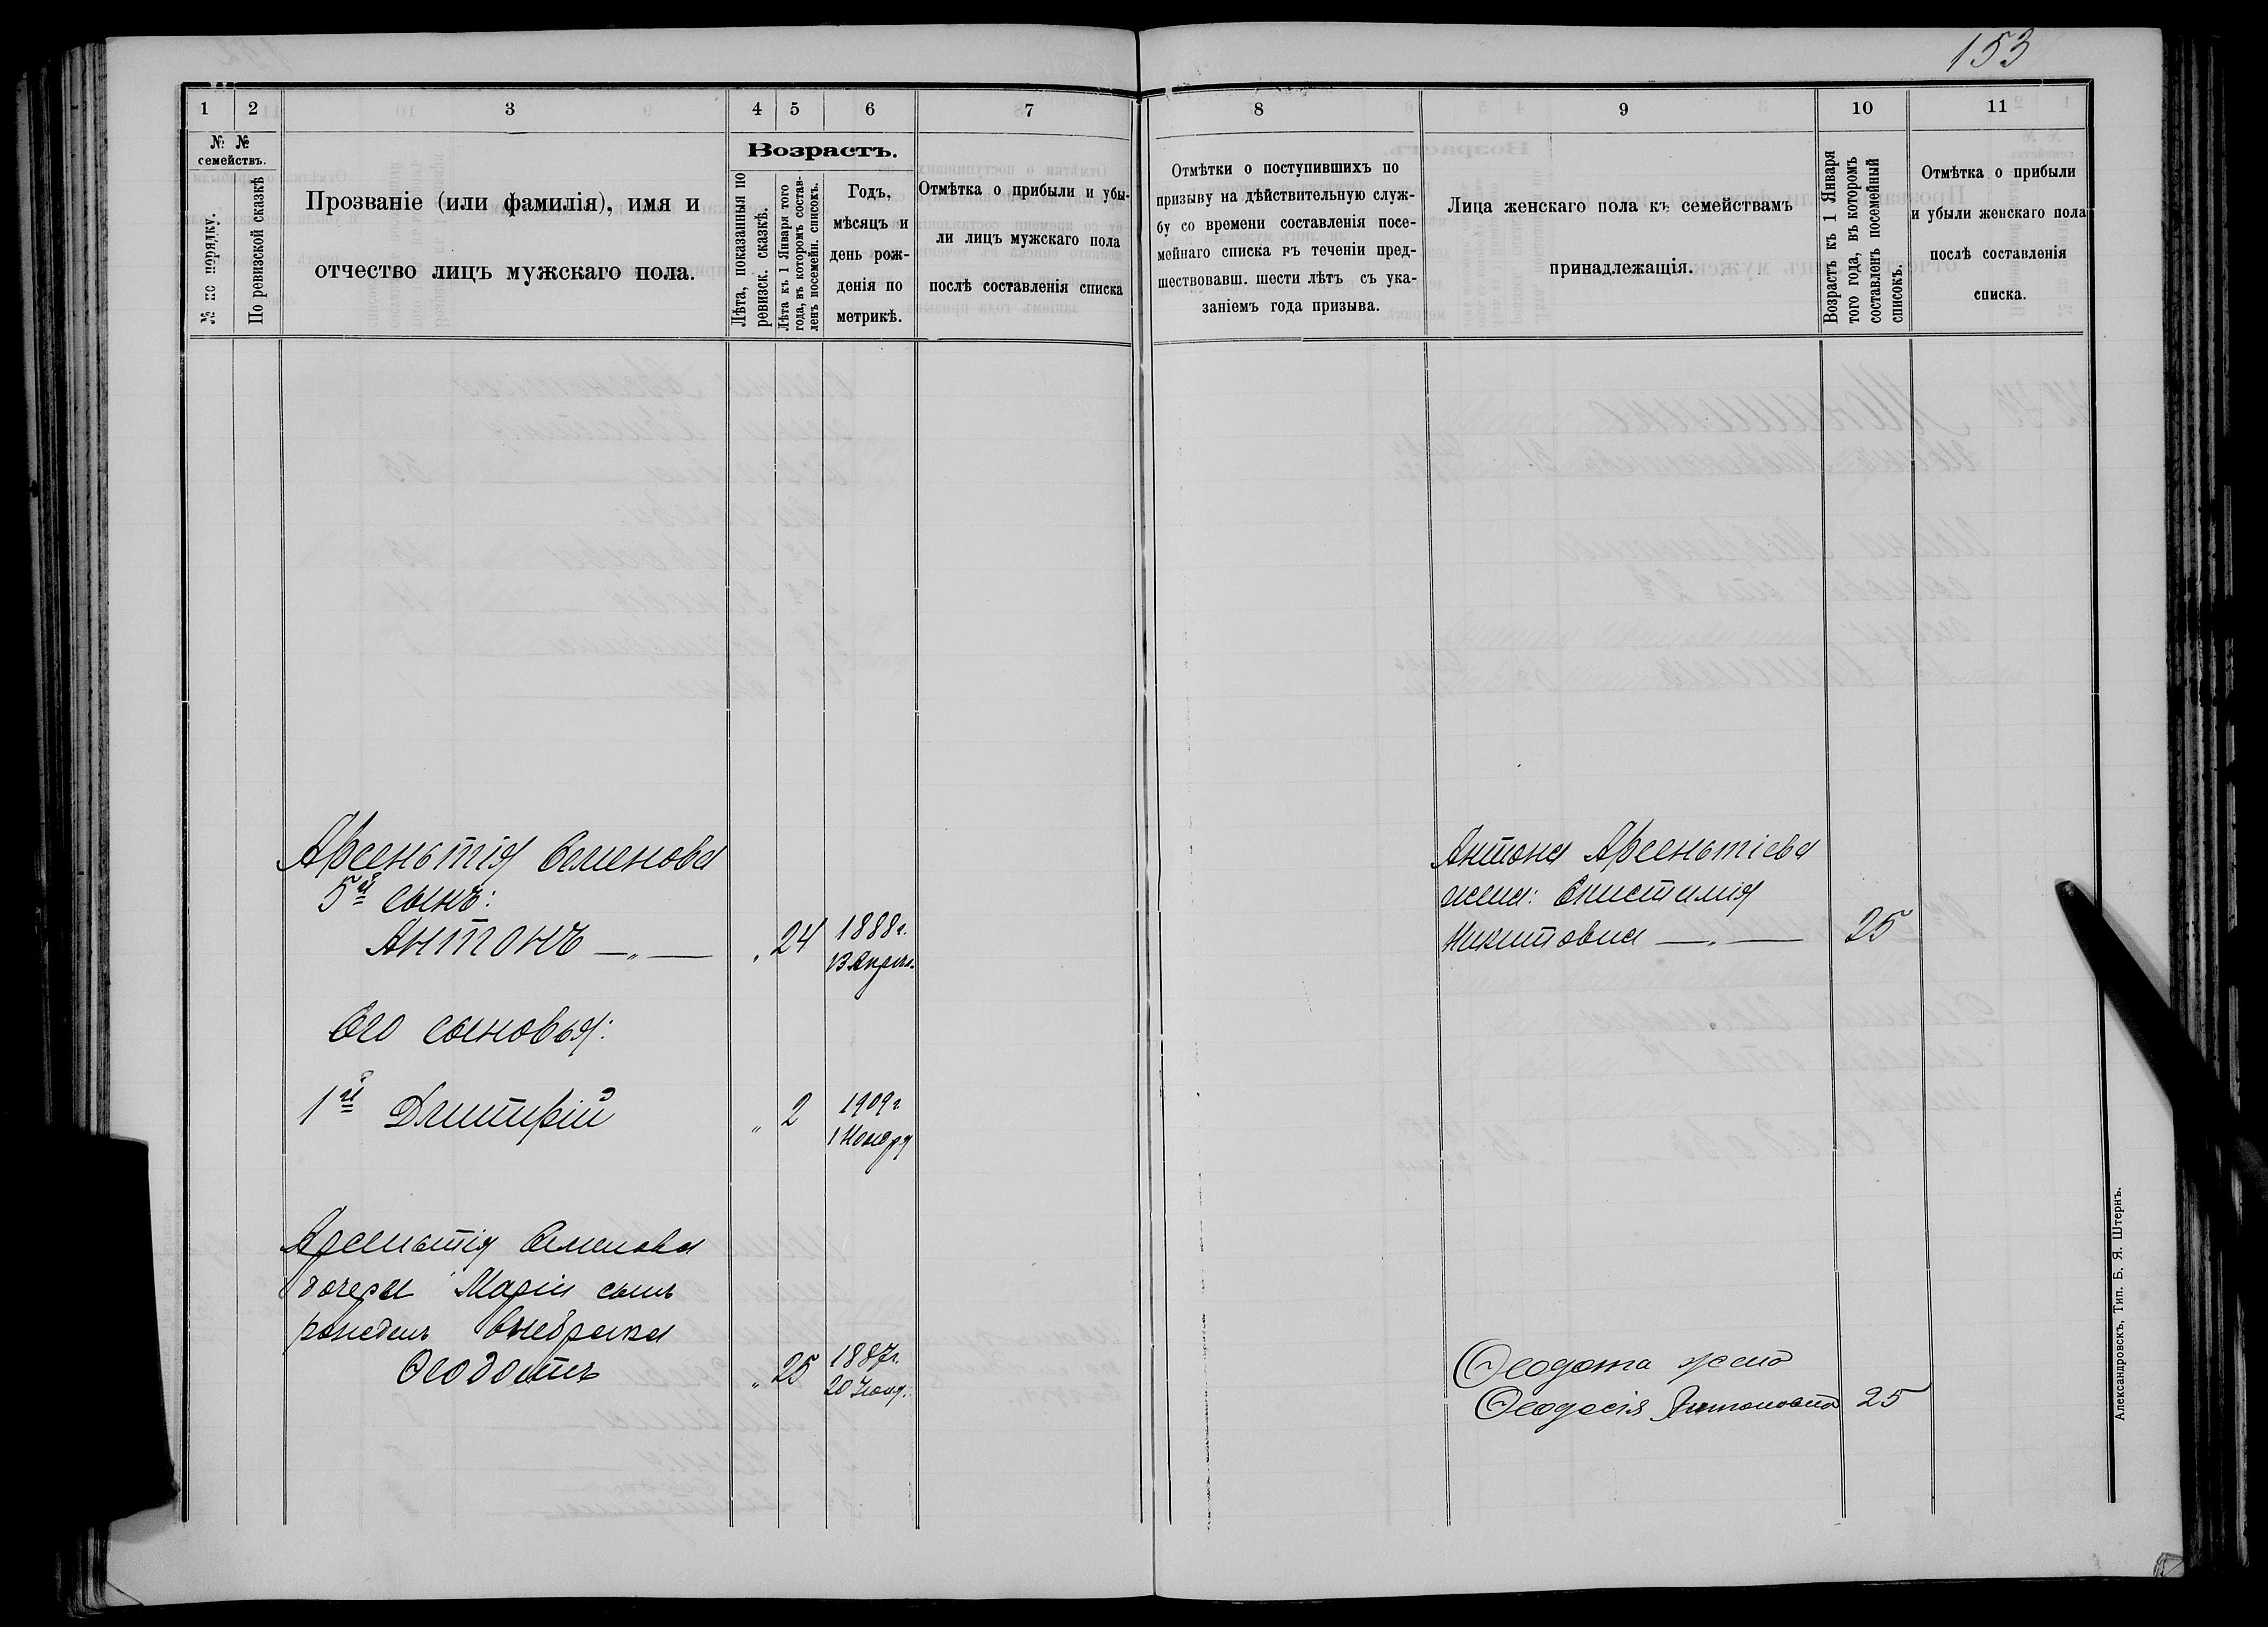 153
1 2 3 4 5 6 7
№ № семействъ.
№ по порядку.
По ревизской сказкѣ
Прозваніе (или фамилія), имя и
отчество лицъ мужскаго пола.
Возрастъ.
Лѣта, показанныя по
ревизск. сказкѣ.
Лѣта къ 1 Января того
года, въ которомъ состав-
ленъ посемейн. списокъ.
Годъ,
мѣсяцъ и
день рож-
денія по
метрикѣ.
Отмѣтка о прибыли и убы-
ли лицъ мужскаго пола
послѣ составленія списка
Арсеньтія Семенова
5й сынъ:
Антонъ —„— „ 24 1888 г.
13 Апрѣл.
Его сыновья:
1й Дмитрій „ 2 1909 г
1 Ноября
Арсеньтія Семенова
дочери Маріи сынъ
рожденъ внебрака
Ѳеодотъ „ 25 1887 г.
20
8 9 10 11
Отмѣтки о поступившихъ по
призыву на дѣйствительную служ-
бу со времени составленія посе-
мейнаго списка въ теченіи пред-
шествовавш. шести лѣтъ съ ука-
заніемъ года призыва.
Лица женскаго пола къ семействамъ
принадлежащія.
Возрастъ къ 1 Января
того года, въ которомъ
составленъ посемейный
списокъ.
Отмѣтка о прибыли
и убыли женскаго пола
послѣ составленія
списка.
Антона Арсеньтіева
жена: Епистимія
Никитовна —„— 25
Ѳеодота жена
Ѳеодосія Антоновна 25
Александровскъ, Тип. Б. Я. Штернъ.